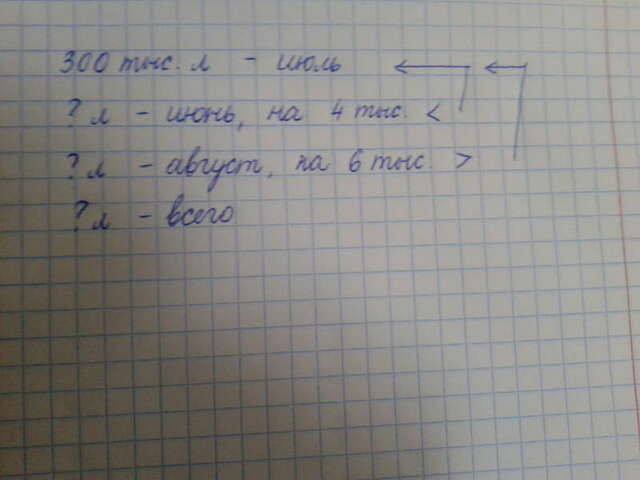 300 тыс. л - июль
? л - июнь, на 4 тыс. <
? л - август, на 6 тыс. >
? л - всего